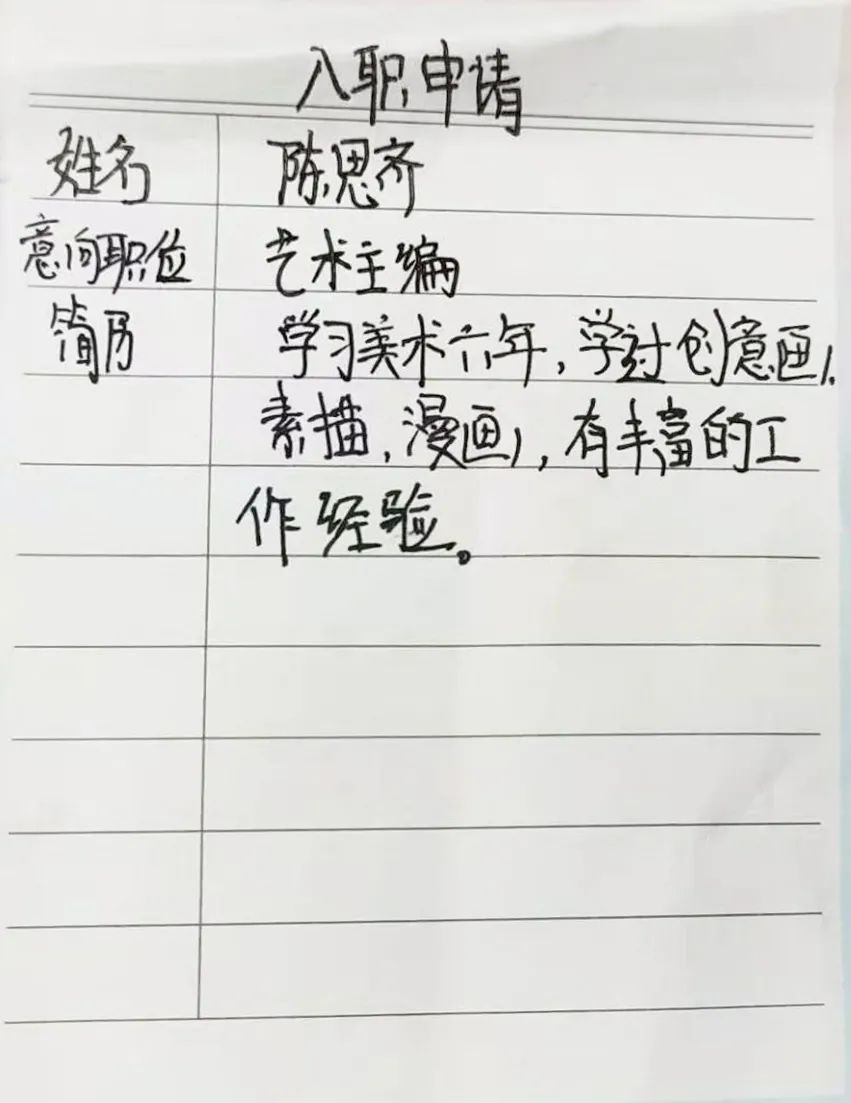 入职申请
姓名 陈思齐
意向职位 艺术主编
简历 学习美术六年,学过创意画,
素描,漫画,有丰富的工
作经验。